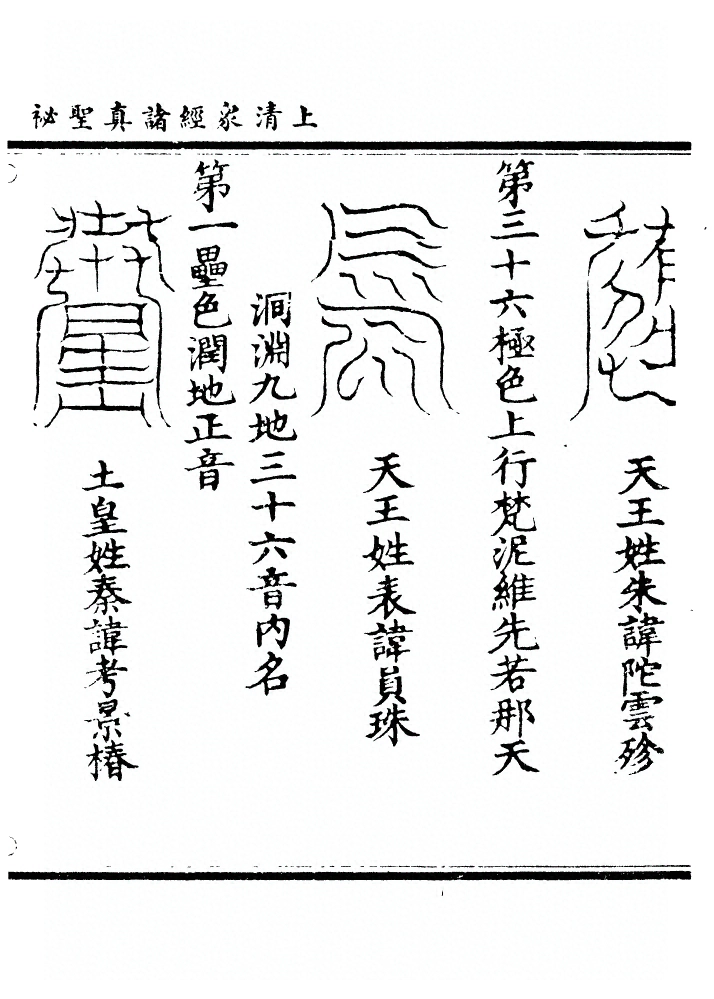 上清眾經諸真聖祕
天王姓朱諱陀雲殄
第三十六極色上行梵泥維先若那天
天王姓表諱員珠
洞淵九地三十六音内名
第一壘色潤地正音
土皇姓秦諱考景椿